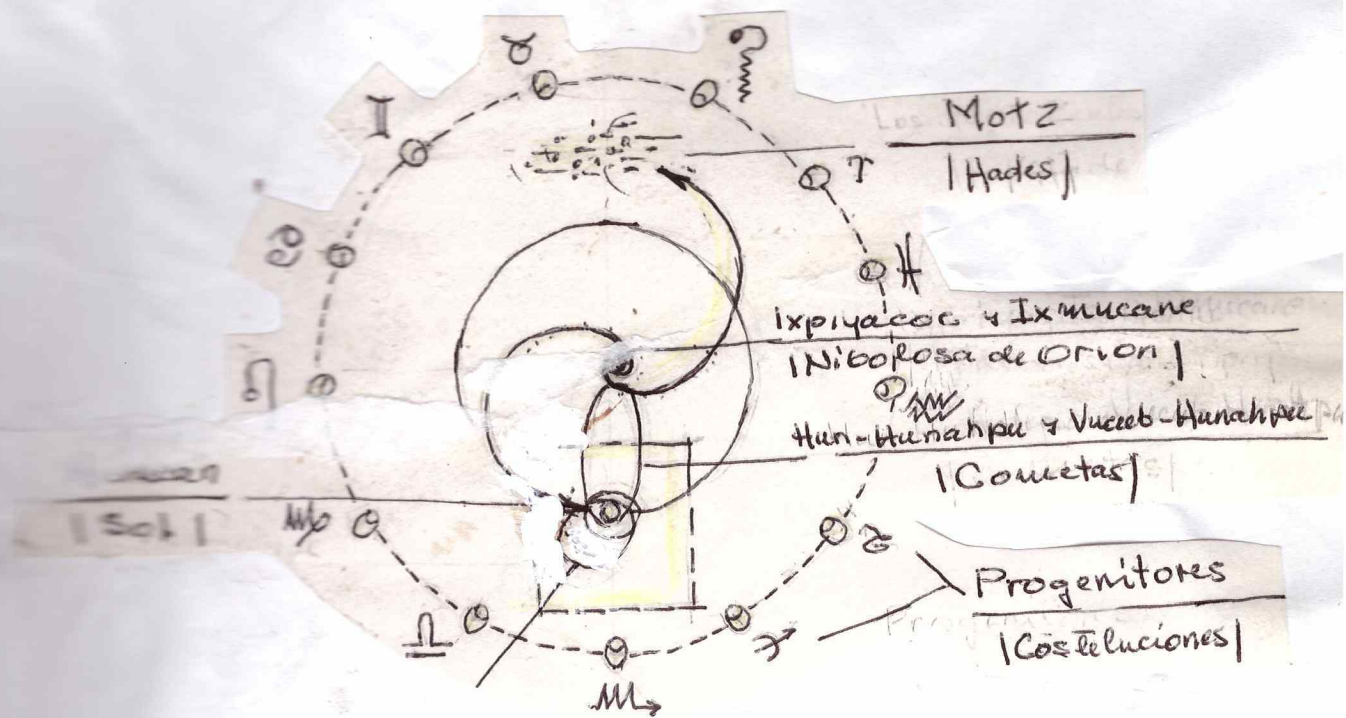 Motz
|Hades|
Ixpiyacoc y Ixmucane
|Nibolosa de Orion|
Hun-Hunahpu y Vucub-Hunahpu
|Cometas|
|Sol|
Progenitores
|Costeluciones|